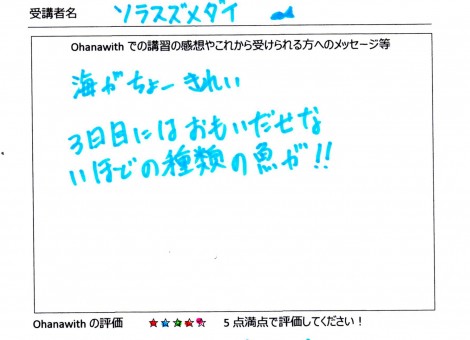 受講者名 ソラスズメダイ
Ohanawith での講習の感想やこれから受けられる方へのメッセージ等
海がちょーきれい
3日目にはおもいだせな
いほどの種類の魚が!!
Ohanawith の評価 ★★★★★ 5点満点で評価してください！